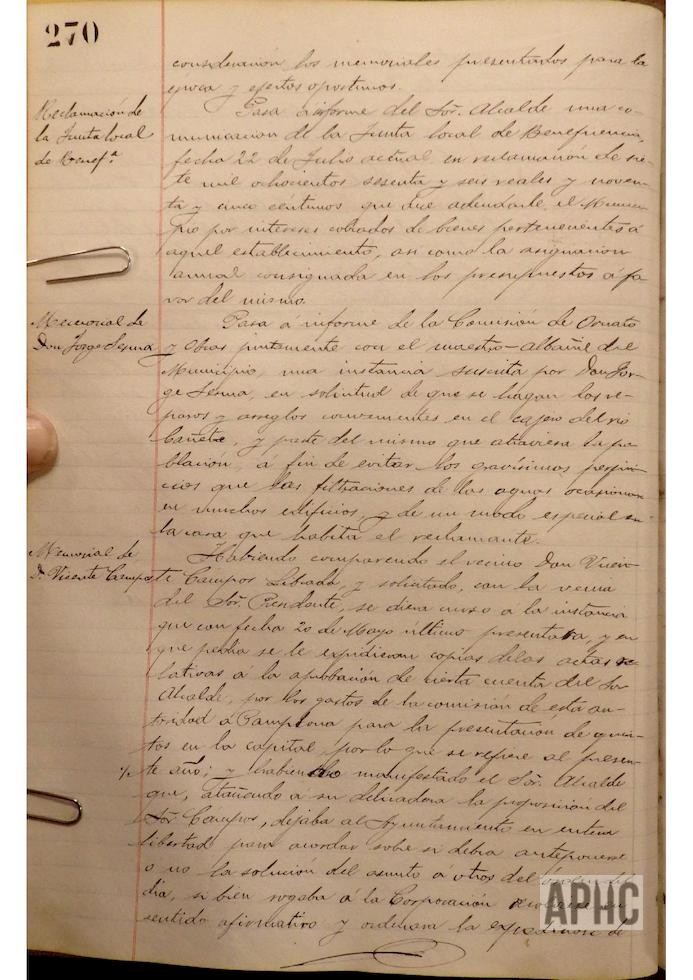 270
consideración los memoriales presentados para la
época y efectos oportunos.
Reclamacion de
la Junta local
de Benefª
Pasa á informe del Sor. Alcalde una co-
municacion de la Junta local de Beneficencia,
fecha 22 de Julio actual en reclamación de sie-
te mil ochocientos sesenta y seis reales y noven-
ta y cinco céntimos que dice adeudarle el Munici-
pio por intereses cobrados de bienes pertenecientes á
aquel establecimiento, asi como la asignacion
annal consignada en los presupuestos á fa-
vor del mismo.
Memorial de
Don Jorge Serma
Pasa á informe de la Comisión de Ornato
y Obras juntamente con el maestro-albañil del
Municipio, una instancia suscrita por Don Jor-
ge Serma, en solicitud de que se hagan los re-
paros y arreglos convenientes en el cajero del rio
Cañete, y parte del mismo que atraviesa la po-
blación, á fin de evitar los gravísimos perjui-
cios que las filtraciones de las aguas ocasionan
en muchos edificios, y de un modo especial en
la casa que habita el reclamante.
Memorial de
D. Vicente Campos
Habiendo comparecido el vecino Don Vicen-
te Campos Libada, y solicitado, con la venia
del Sor. Presidente, se diera curso á la instancia
que con fecha 20 de Mayo último presentara, y en
que pedia se le expidieran copias de las actas re-
lativas á la aprobación de cierta cuenta del Sor
Alcalde, por los gastos de la comisión de esta au-
toridad á Pamplona para la presentación de quin-
tos en la capital, por lo que se refiere al presen-
te año; y habiendo manifestado el Sor. Alcalde
que, atañendo á su delicadeza la proposición del
Sor Campos, dejaba al Ayuntamiento en entera
libertad para acordar sobre si debia anteponerse
o no la solución del asunto á otros del orden del
dia, si bien rogaba á la Corporación en
sentido afirmativo y ordenara la expedicion de
APHC